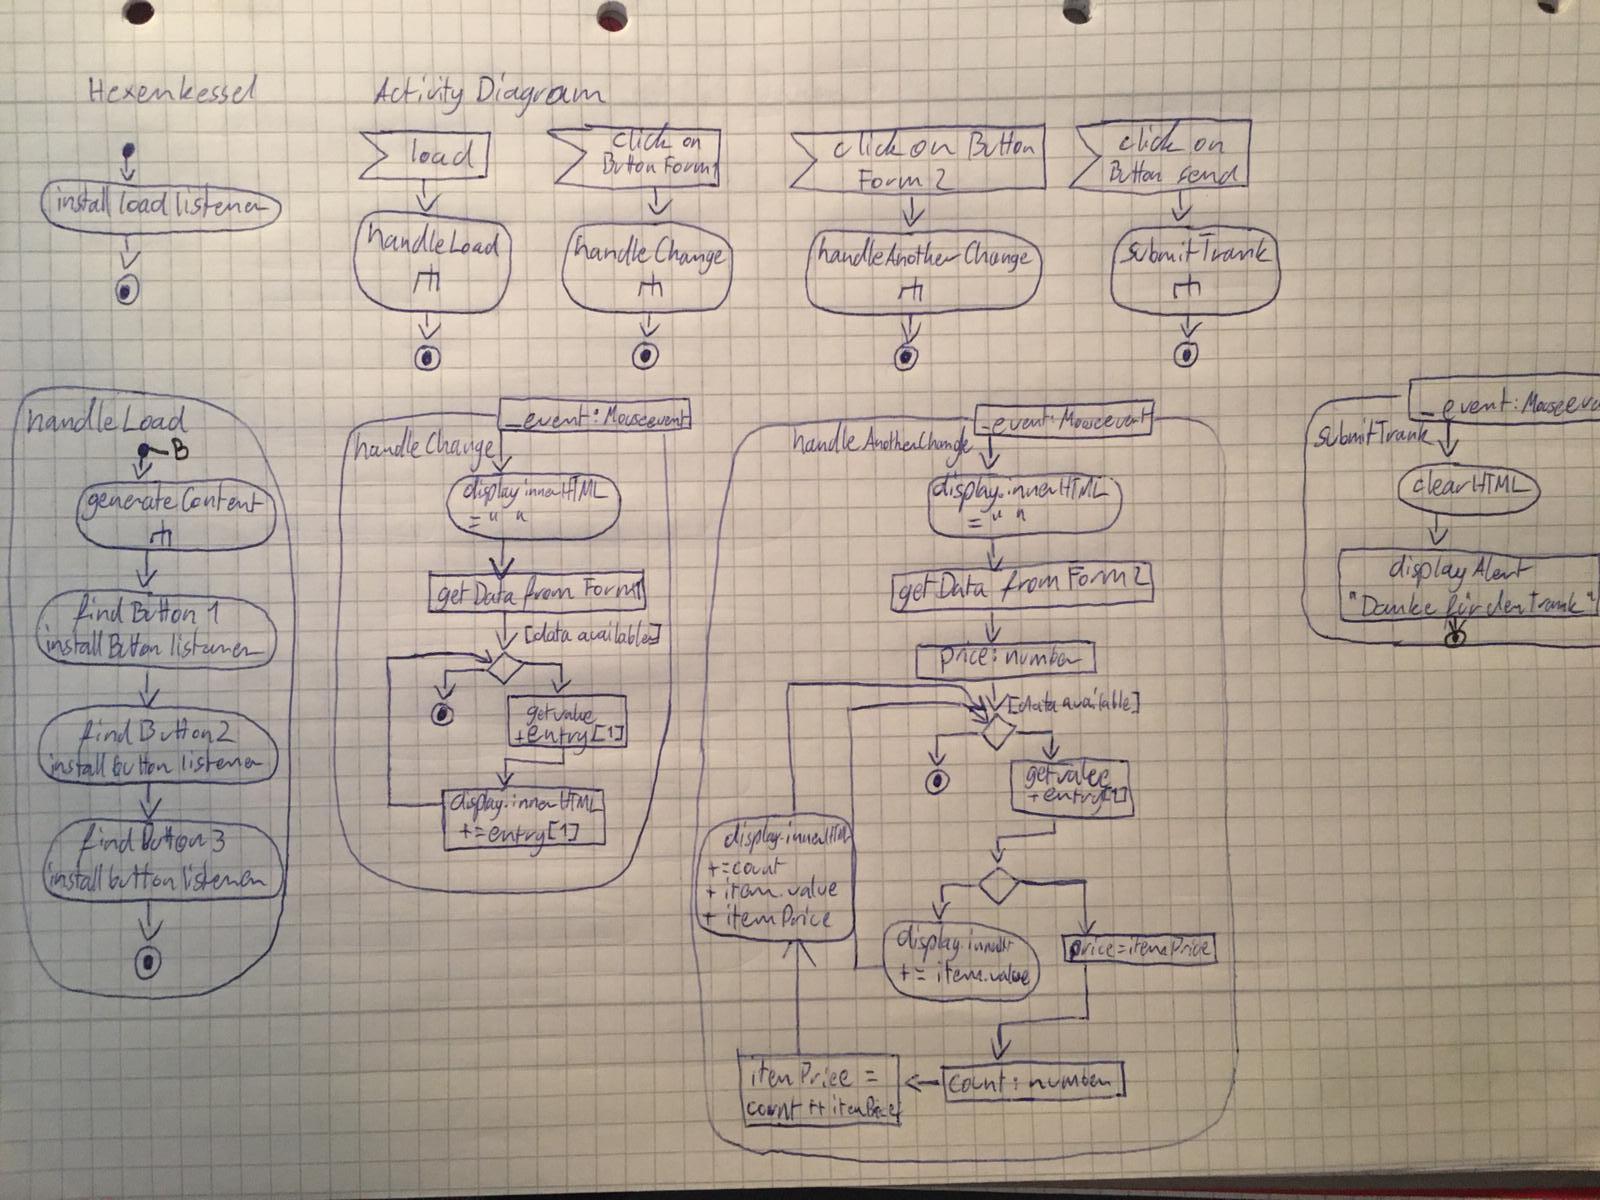 Hexenkessel
Activity Diagram
install load listener
load
handleLoad
click on
Button Form1
handleChange
click on Button
Form 2
handleAnotherChange
click on
Button send
submitTrank
handleLoad
B
generateContent
find Button 1
install Button listener
find Button 2
install button listener
find Button 3
install button listener
_event: Mouseevent
handleChange
display.innerHTML
= " "
getData from Form1
[data available]
getvalue
+entry[1]
display.innerHTML
+=entry[1]
_event: Mouseevent
handleAnotherChange
display.innerHTML
= " "
getData from Form 2
price: number
[data available]
getvalue
+entry[1]
display.innerHTML
+=count
+ item.value
+ itemPrice
display.inner
+= item.value
price=itemPrice
count: number
itemPrice =
count ** itemPrice
_event: Mouseeve
submitTrank
clearHTML
displayAlert
"Danke für den Trank"